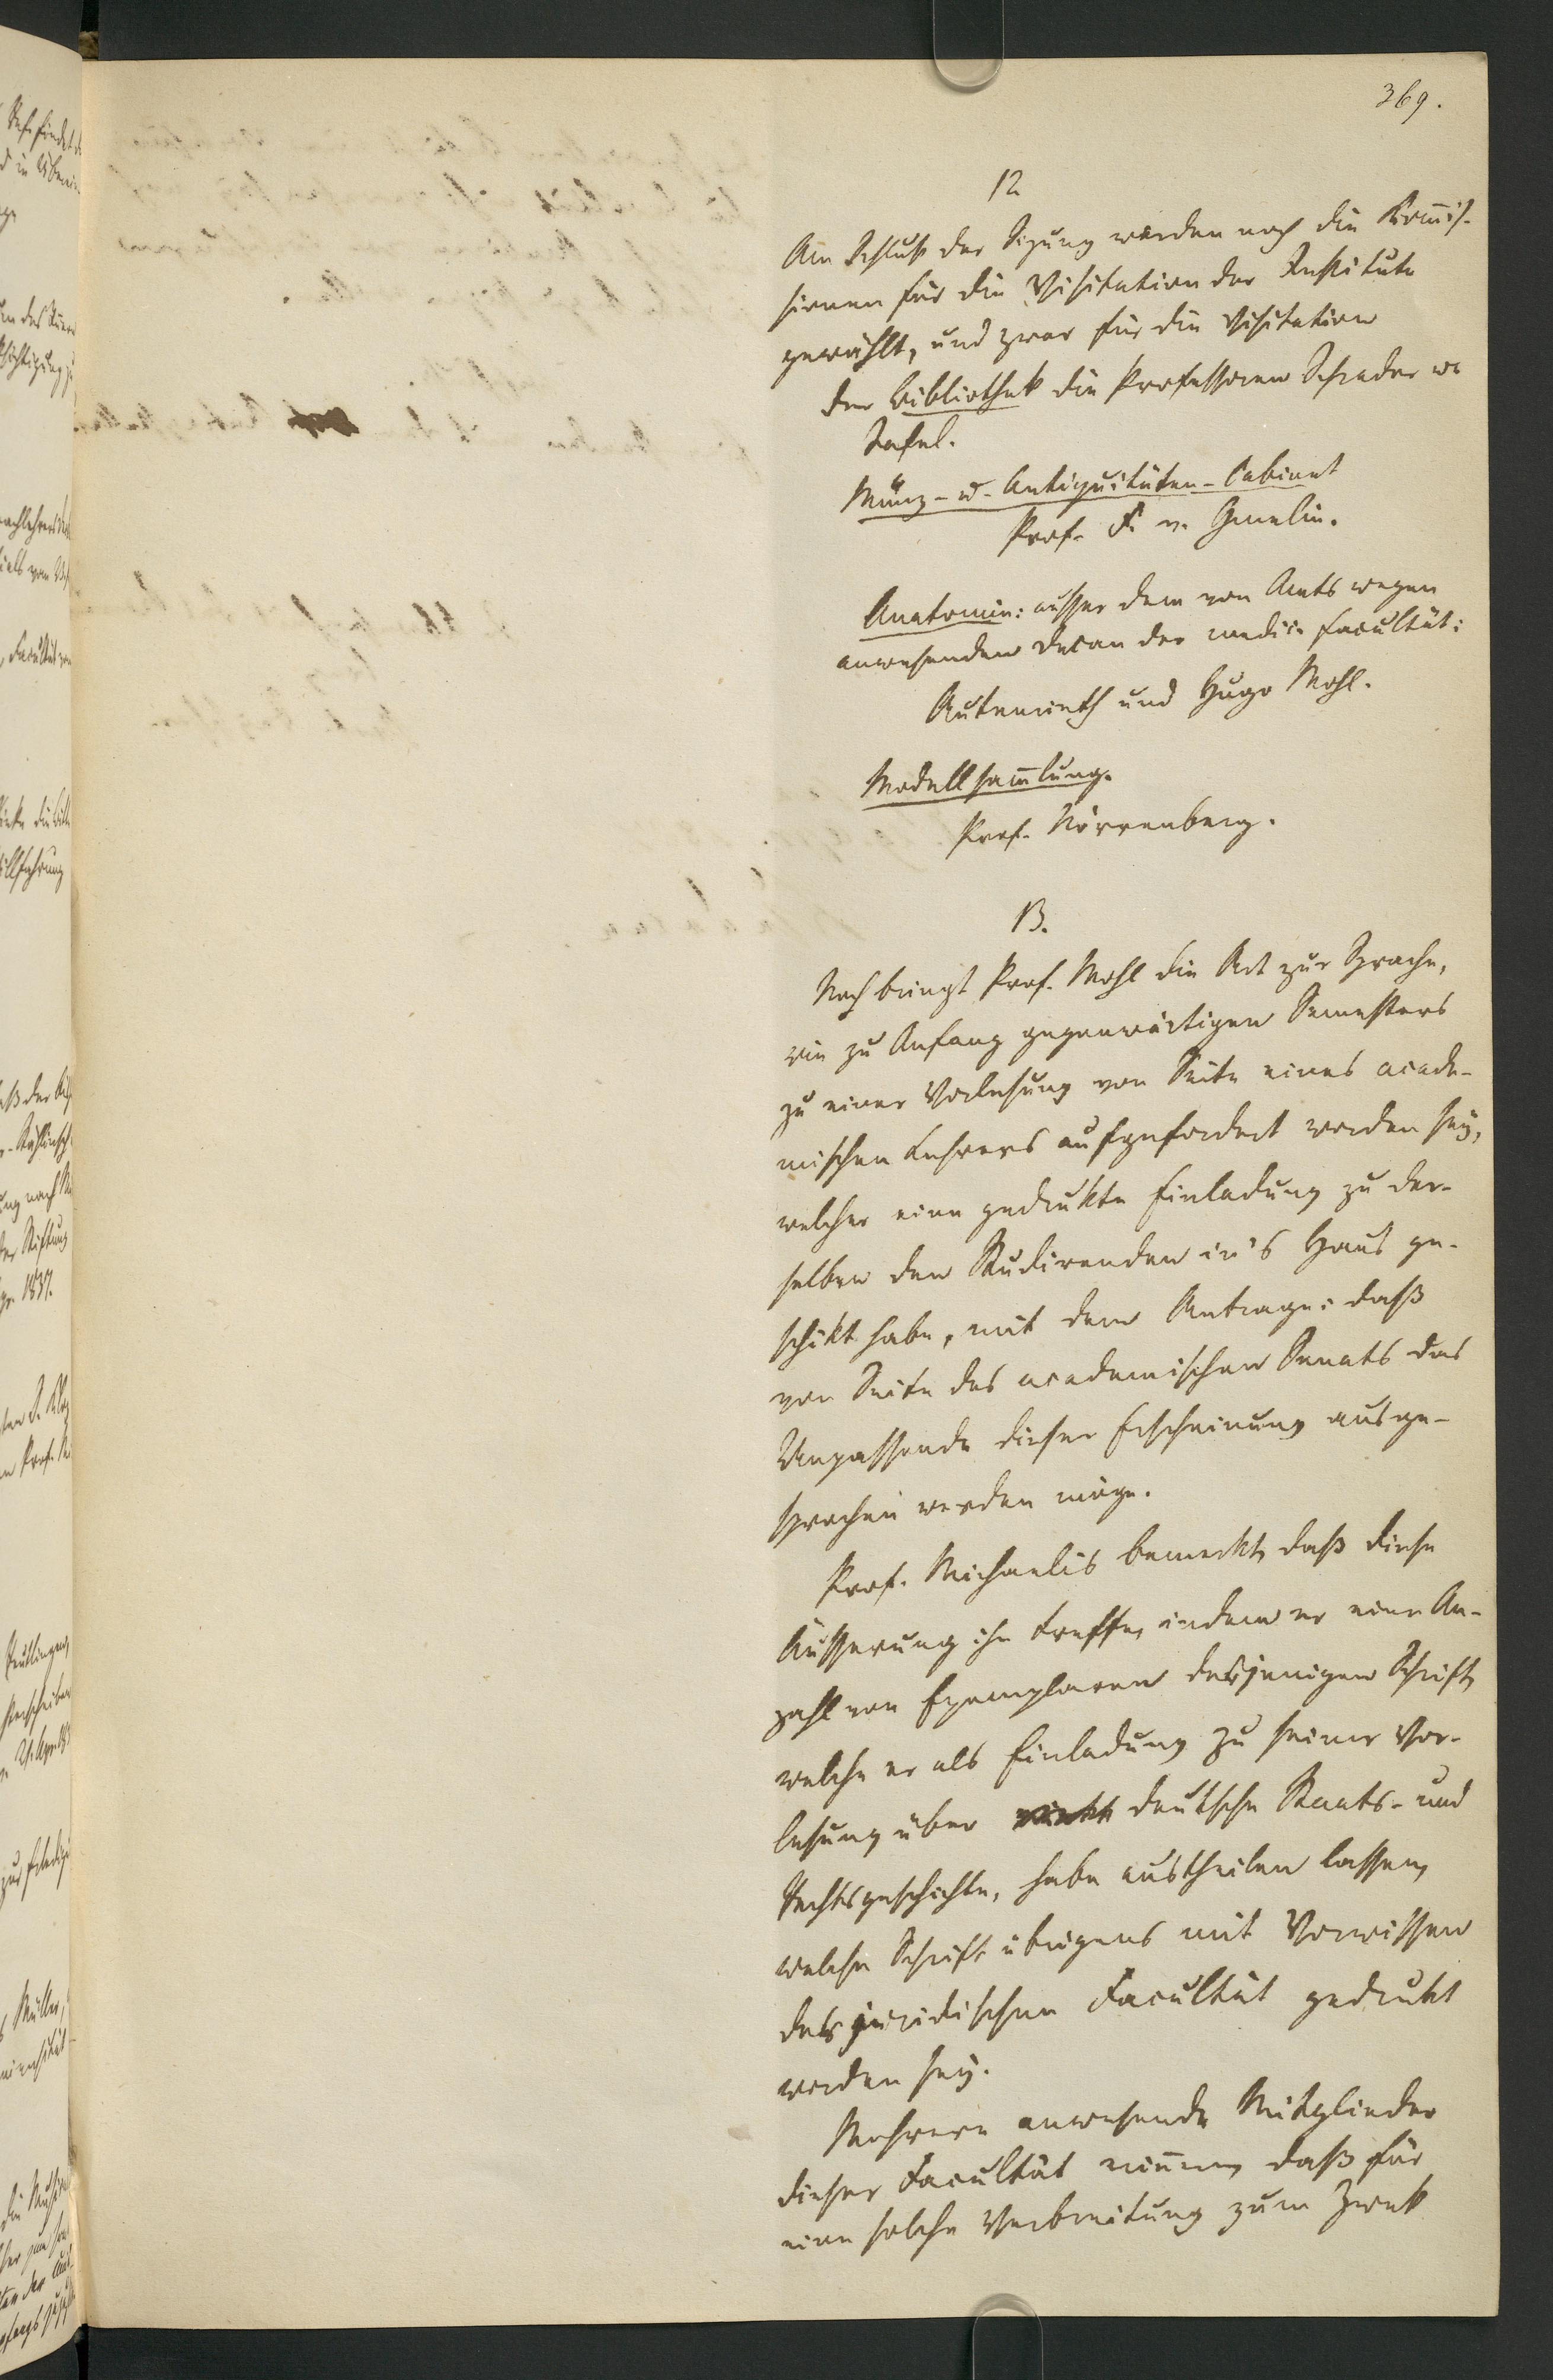 369.
12
Am Schluß der Sizung werden noch die Kom̄is-
sionen für die Visitation der Institute
gewählt, und zwar für die Visitation
der Bibliothek die Professoren Schrader u.
Tafel.
Münz- u. Antiquitäten-Cabinet
Prof. F. v. Gmelin.
Anatomie: ausser dem von Amts wegen
anwesenden Decan der medic. Facultät:
Autenrieth und Hugo Mohl.
Modellsam̄lung.
Prof. Nörrenberg.
13.
Noch bringt Prof. Mohl die Art zur Sprache,
wie zu Anfang gegenwärtigen Semesters
zu einer Vorlesung von Seite eines acade-
mischen Lehrers aufgefordert worden sey,
welcher eine gedrukte Einladung zu der-
selben den Studirenden in's Haus ge-
schikt habe, mit dem Antrage: daß
von Seite des academischen Senats das
Unpassende dieser Erscheinung ausge-
sprochen werden möge.
Prof. Michaelis bemerkt, daß diese
Äusserung ihn treffe, indem er eine An-
zahl von Exemplaren derjenigen Schrift,
welche er als Einladung zu seiner Vor-
lesung über deutsche Staats- und
Rechtsgeschichte, habe austheilen lassen,
welche Schrift übrigens mit Vorwissen
der juridischen Facultät gedrukt
worden sey.
Mehrere anwesende Mitglieder
dieser Facultät daß für
eine solche Verbreitung zum Zwek